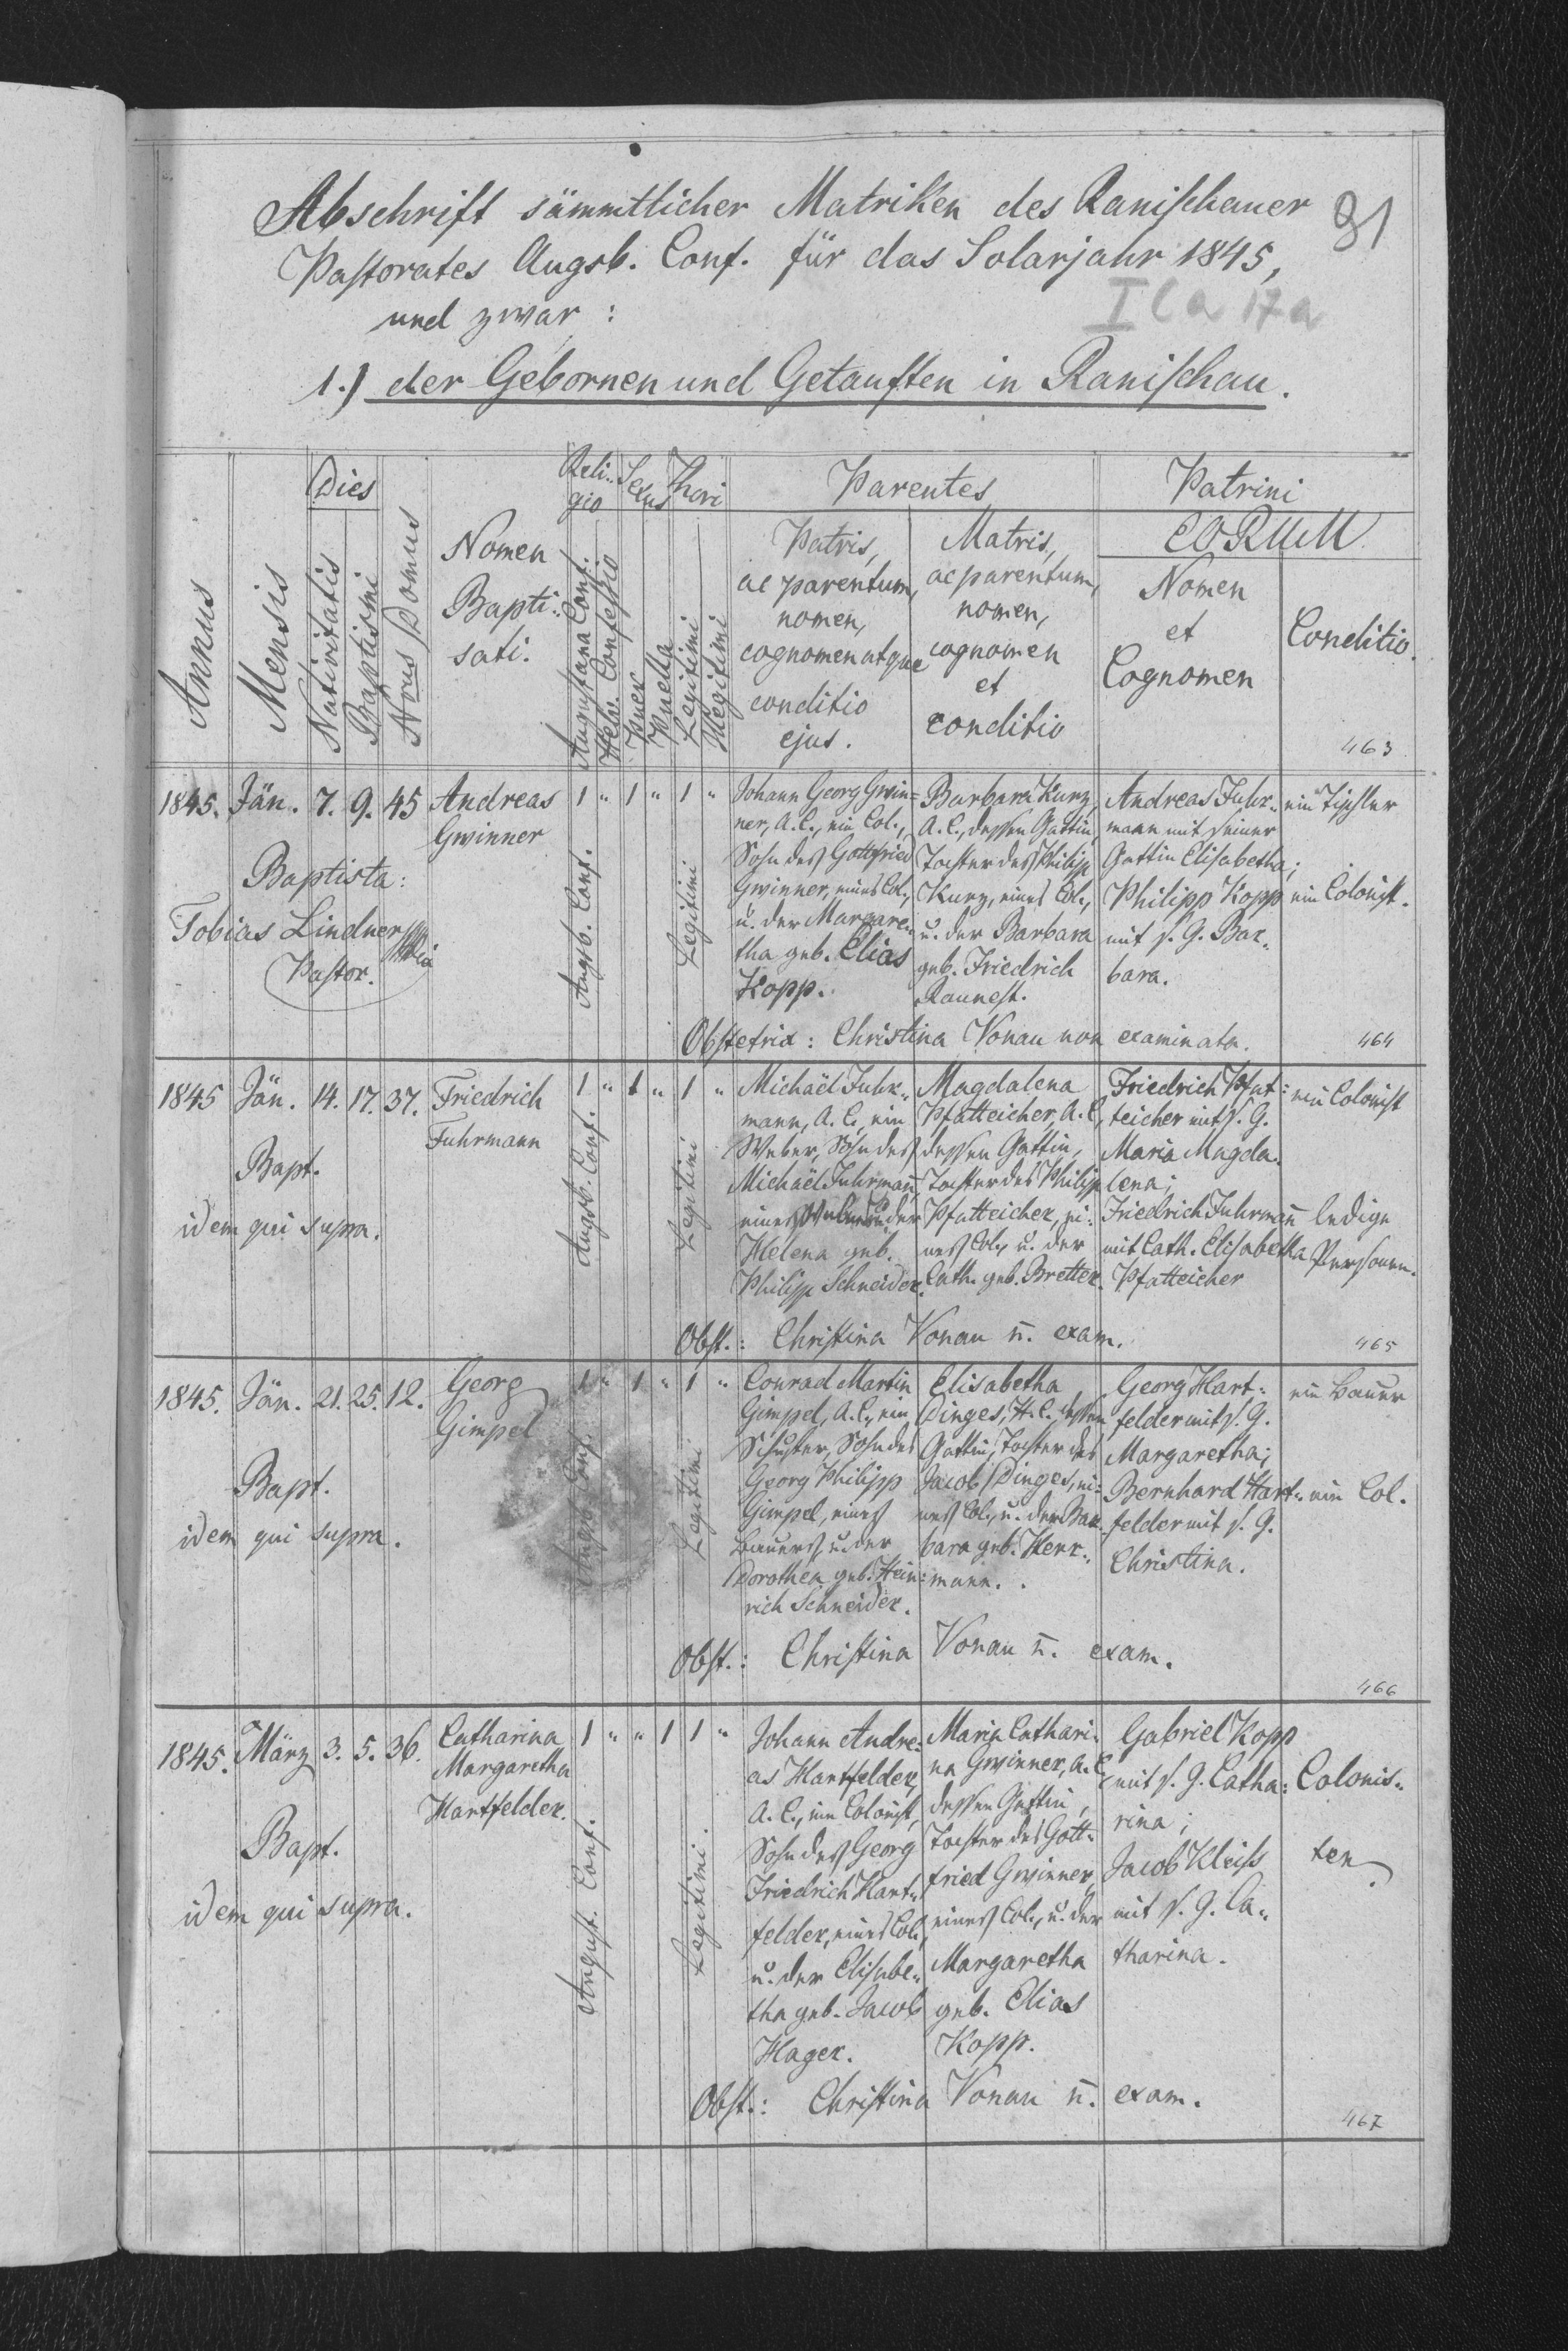 Abschrift sämmtlicher Matriken des Ranischauer
81
Pastorates Augsb. Conf. für das Solarjahr 1845,
und zwar :
I C a 17 a
1.) der Gebornen und Getauften in Ranischau.
Annus
Mensis
Dies
Nativitatis
Baptismi
Nrus Domus
Nomen
Bapti-
sati.
Reli-
gio
Augustana Conf.
Helv. Confessio
Sexus
Puer
Puella
Thori
Legitimi
Illegitimi
Parentes
Patris,
ac parentum,
nomen,
cognomen atque
conditio
ejus.
Matris,
ac parentum,
nomen,
cognomen
et
conditio
Patrini
EORUM
Nomen
et
Cognomen
Conditio.
463
1845. Jän. 7. 9. 45 Andreas 1 " 1 " 1 "
Gwinner
Baptista:
Tobias Lindner
Pastor.
Augsb. Conf.
Legitimi
Johann Georg Gwin=
ner, A. C., ein Col.,
Sohn des Gottfried
Gwinner, eines Col.,
u. der Margare-
tha geb. Elias
Kopp.
Barbara Kurz,
A. C., dessen Gattin,
Tochter des Philipp
Kurz, eines Col.,
u. der Barbara
geb. Friedrich
Raunest.
Andreas Fuhr-
mann mit seiner
Gattin Elisabetha;
Philipp Kopp
mit s. G. Bar-
bara.
ein Tischler
ein Colonist.
Obstetrix: Christina Vonau non examinata.
464
1845 Jän. 14. 17. 37. Friedrich 1 " 1 " 1 "
Fuhrmann
Bapt.
idem qui supra.
Augsb. Conf.
Legitimi
Michaël Fuhr-
mann, A. C., ein
Weber, Sohn des
Michaël Fuhrmann,
eines Webers u. der
Helena geb.
Philipp Schneider.
Magdalena
Pfatteicher, A. C.,
dessen Gattin,
Tochter des Philipp
Pfatteicher, ei-
nes Col., u. der
Cath. geb. Bretter.
Friedrich Pfat=
teicher mit s. G.
Maria Magda-
lena;
Friedrich Fuhrmann
mit Cath. Elisabetha
Pfatteicher
ein Colonist
ledige
Personen.
Obst.: Christina Vonau n. exam.
465
1845. Jän. 21. 25. 12. Georg 1 " 1 " 1 "
Gimpel
Bapt.
idem qui supra.
Augsb. Conf.
Legitimi
Conrad Martin
Gimpel, A. C., ein
Schuster, Sohn des
Georg Philipp
Gimpel, eines
Bauers, u. der
Dorothea geb. Hein=
rich Schneider.
Elisabetha
Dinges, H. C. dessen
Gattin, Tochter des
Jacob Dinges, ei=
nes Col., u. der Bar-
bara geb. Herr-
mann.
Georg Hart-
felder mit s. G.
Margaretha;
Bernhard Hart-
felder mit s. G.
Christina.
ein Bauer
ein Col.
Obst.: Christina Vonau n. exam.
466
1845. März 3. 5. 36. Catharina 1 " " 1 1 "
Margaretha
Hartfelder.
Bapt.
idem qui supra.
August. Conf.
Legitimi.
Johann Andre-
as Hartfelder,
A. C., ein Colonist,
Sohn des Georg
Friedrich Hart-
felder, eines Col.,
u. der Elisabe-
tha geb. Jacob
Hager.
Maria Cathari-
na Gwinner, A. C.,
dessen Gattin,
Tochter des Gott-
fried Gwinner,
eines Col., u. der
Margaretha
geb. Elias
Kopp.
Gabriel Kopp
mit s. G. Catha-
rina;
Jacob Kleiss
mit s. G. Ca-
tharina.
Colonis-
ten.
Obst.: Christina Vonau n. exam.
467